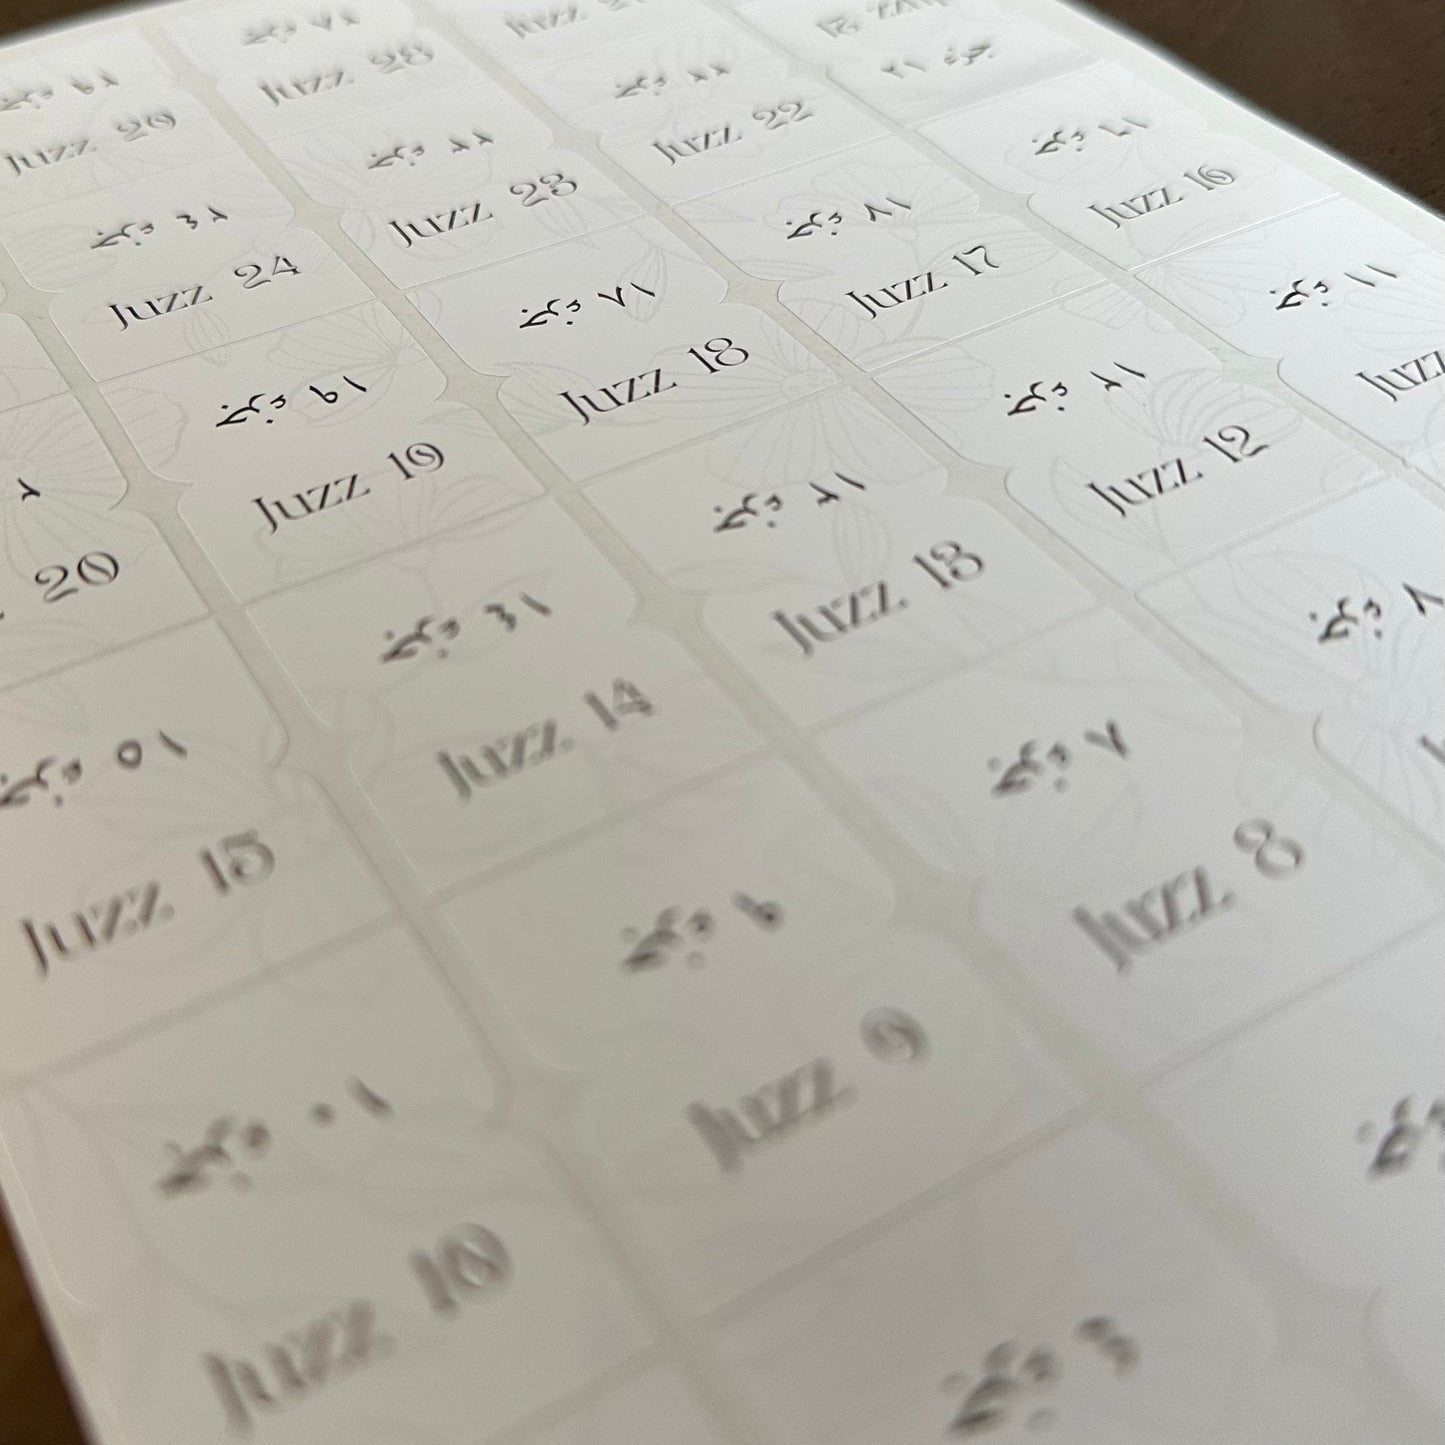 جزء ٢٩
Juzz 29
جزء ٢٨
Juzz 28
جزء ٢٤
Juzz 24
جزء ٢٣
Juzz 23
جزء ٢٢
Juzz 22
جزء ٢١
20
جزء ١٩
Juzz 19
جزء ١٨
Juzz 18
جزء ١٧
Juzz 17
جزء ١٦
Juzz 16
جزء ١٥
Juzz 15
جزء ١٤
Juzz 14
جزء ١٣
Juzz 13
جزء ١٢
Juzz 12
جزء ١١
Juzz
جزء ١٠
Juzz 10
جزء ٩
Juzz 9
جزء ٨
Juzz 8
جزء ٧
جزء ٤